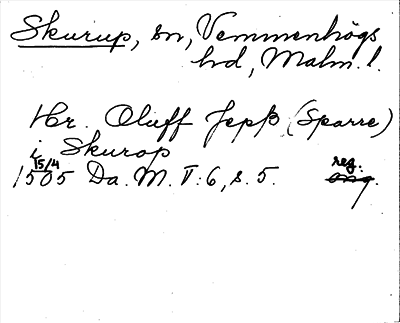 Skurup, sn, Vemmenhögs
hd, Malm. l.
Hr. Oluff Jepß (Sparre)
i Skurop
15/4
1505 Da. M. V: 6, s. 5.
reg.
orig.